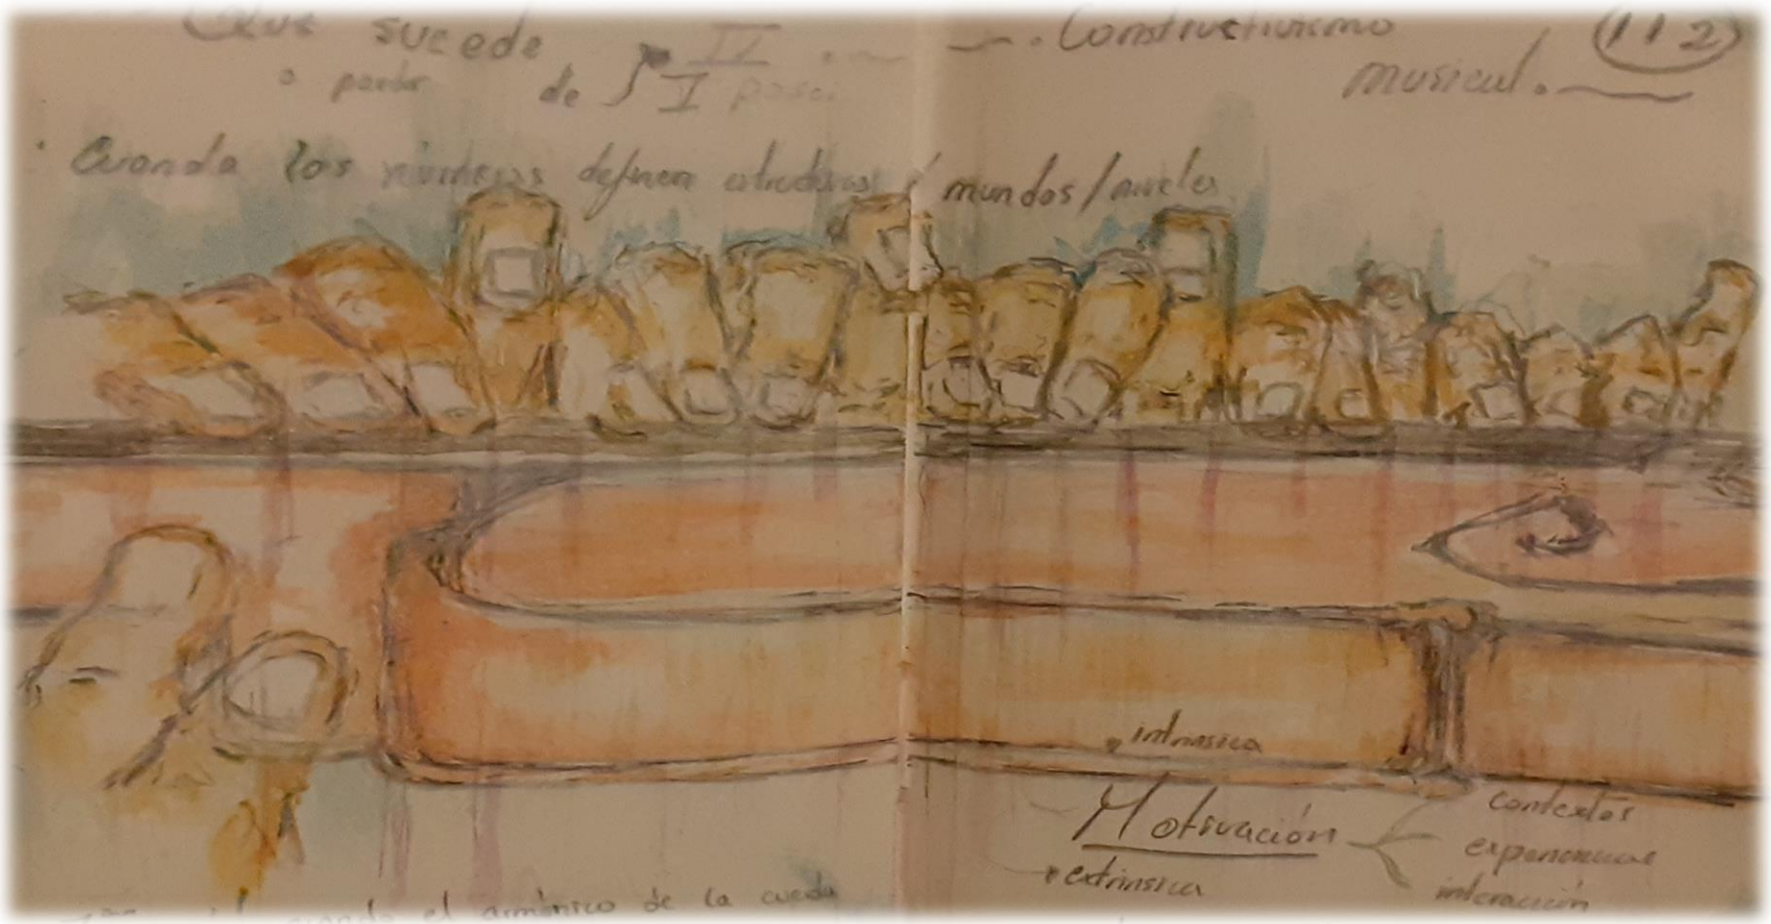 Que sucede IV
a partir de V posi.
. Constructivismo
musical.
112
Cuando los números definen estructuras / mundos/niveles
intrinsica
Motivación
extrinsica
contextos
experiencias
interacción
cuando el armónico de la cuerda